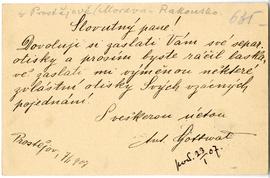 v Prostějově (Morava - Rakousko
Slovutný pane!
Dovoluji si zaslati Vám své separ.
otisky a prosím byste ráčil laska
vě zaslati mi výměnou některé
zvláštní otisky Svých vzácných
pojednání.
S veškerou úctou
Ant. Gottwald
Prostějov,